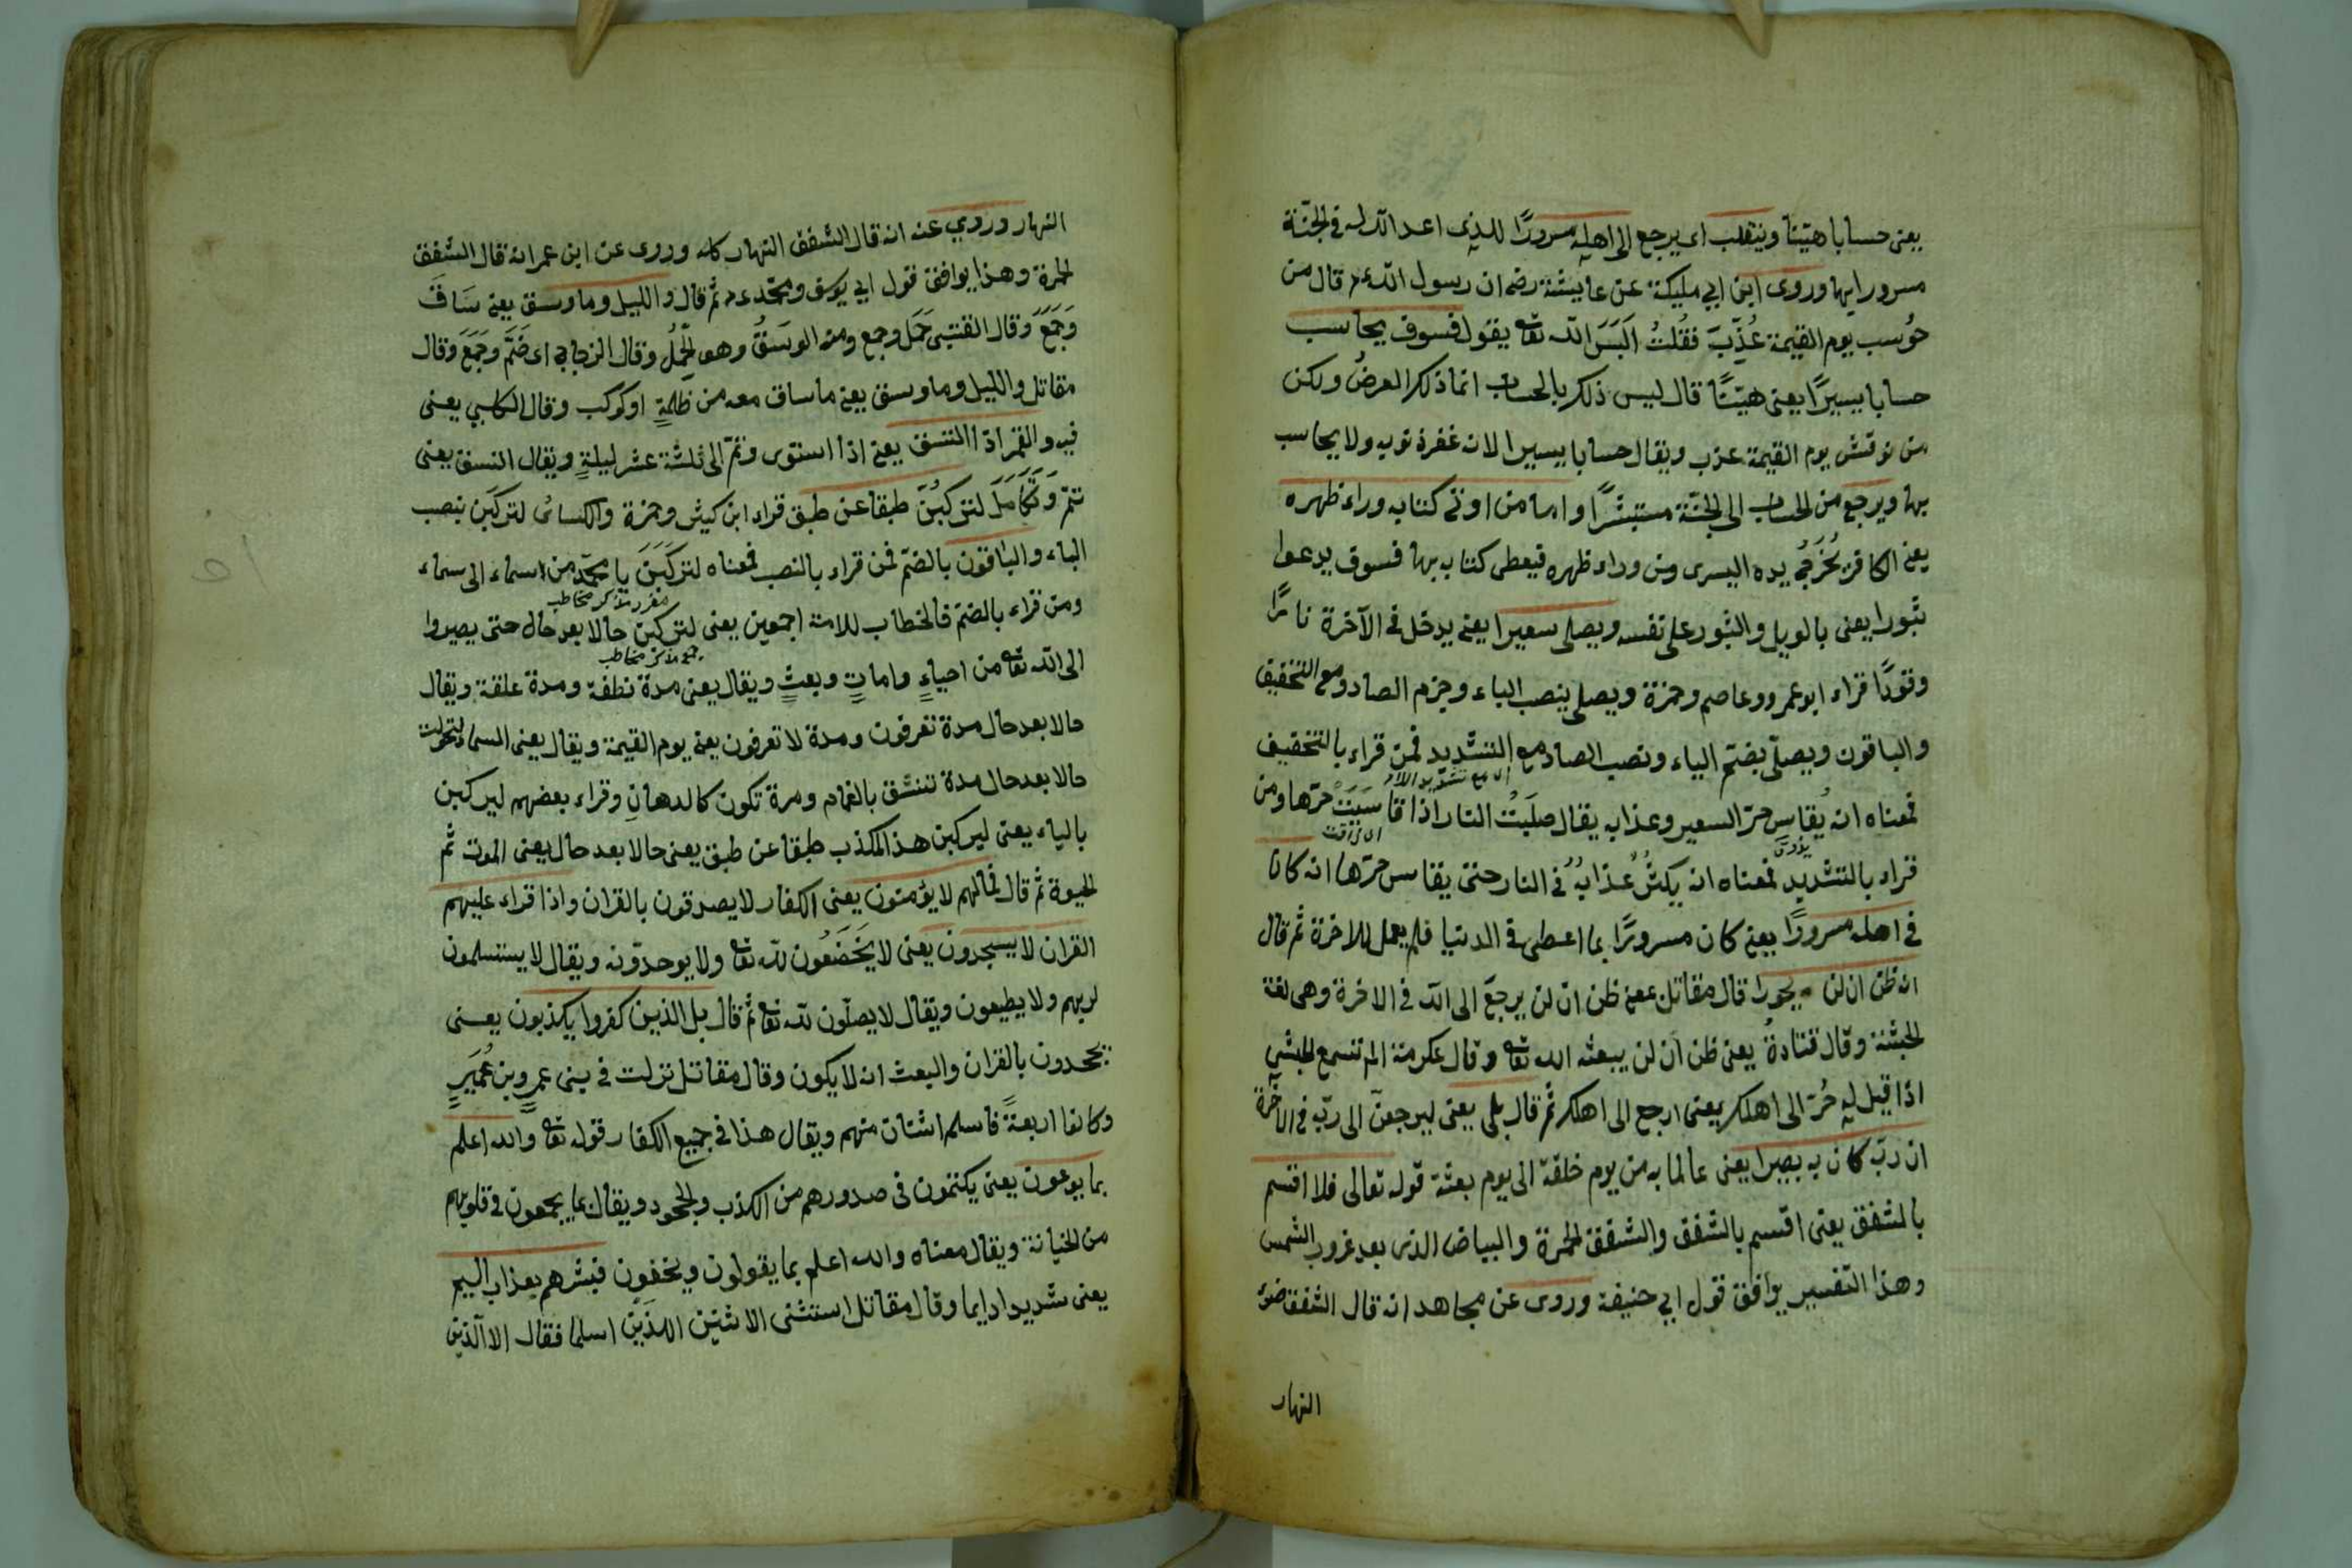 يعنى حسابا هيّنا وينقلب اى يرجع الى اهله مسرورًا للذى اعد الله له فى الجنّة
مسرورا بها وروى ابن ابي مليكة عن عايشة رضها ان رسول الله عم قال من
حُوسب يوم القيمة عُذِّبَ فقُلتُ اَلَيسَ الله تعالى يقول فسوف يحاسب
حسابا يسيرًا يعنى هيّنًا قال ليس ذلك بالحساب انما ذلك العرضُ ولكن
من نوقش يوم القيمة عذب ويقال حسابا يسيرا لانه غفرة ذنوبه ولا يحاسب
بها ويرجع من الحساب الى الجنّة مستبشرًا واما من اوتى كتابه وراء ظهره
يعنى الكافر يُخرَجُ يده اليسرى من وراء ظهره فيعطى كتابه بها فسوف يدعوا
ثبورا يعنى بالويل والثبور على نفسه ويصلى سعيرا يعنى يدخل فى الآخرة نارًا
وقودًا قراء ابو عمرو وعاصم وحمزة ويصلى بنصب الياء وجزم الصاد ومع التخفيف
والباقون ويصلّى بضمّ الياء ونصب الصاد مع التشديد فمن قراء بالتخفيف
اى مع تشديد اللام
فمعناه انه يُقاسِ حرّ السعير وعذابه يقال صلَيتُ النار اذا قاسَيَتْ حرّها ومن
قراء بالتشديد فمعناه انه يكثُرُ عذابُهُ فى النار حتى يقاسى حرّها انه كان
فى اهله مسرورًا يعنى كان مسرورًا بما اعطى فى الدنيا فلم يعمل للاخرة ثم قال
انه ظن ان لن يحورا قال مقاتل يعنى ظن ان لن يرجعَ الى الله فى الاخرة وهى لغة
الحبشة وقال قتادةُ يعنى ظن ان لن يبعثه الله تعالى وقال عكرمة الم تسمع الحبشي
اذا قيل له حُرْ الى اهلك يعنى ارجع الى اهلك ثم قال بلى يعنى ليرجعنّ الى ربّه فى الآخرة
ان ربّه كان به بصيرا يعنى عالما به من يوم خلقة الى يوم بعثة قوله تعالى فلا اقسم
بالشفق يعنى اقسم بالشفق والشفق الحمرة والبياض الذى بعد غروب الشمس
وهذا التفسير يوافق قول ابي حنيفة وروى عن مجاهد انه قال الشفق ضوء
النهار
النهار وروي عنه انه قال الشفق النهار كله وروى عن ابن عمر انه قال الشفق
الحمرة وهذا يوافق قول ابي يوسف ومحمّد ثم قال والليل وما وسق يعنى سَاقَ
وَجَمَعَ وقال القتبى حَمَل وجمع ومنه الوسَقُ وهو الحِملُ وقال الزجاج اى ضَمَّ وجَمَعَ وقال
مقاتل والليل وما وسق يعنى ما ساق معه من ظلمةٍ او كوكب وقال الكلبي يعنى
فيه والقمر اذا اتسق يعنى اذا استوى وتمّ الى ثلثة عشر ليلةٍ ويقال اتسق يعنى
تمّ وَتَكَامَلَ لتركبُنَّ طبقا عن طبق قراء ابن كثير وحمزة والكسائى لتركبَن بنصب
الباء والباقون بالضمّ فمن قراء بالنصب فمعناه لتركَبَنَّ يا محمّد من سماء الى سماء
مفرد مذكر مخاطب
ومن قراء بالضمّ فالخطاب للامة اجمعين يعنى لتركبنّ حالا بعد حال حتى يصيروا
جمع مذكر مخاطب
الى الله تعالى من احياءٍ واماتٍ وبعثٍ ويقال يعنى مدة نطفة ومدة علقة ويقال
حالا بعد حال مدة تعرفون ومدة لا تعرفون يعنى يوم القيمة ويقال يعنى السماء لتحولت
حالا بعد حال مدة تنشّق بالغمام ومرة تكون كالدهانِ وقراء بعضهم ليركبن
بالياء يعنى ليركبن هذا المكذب طبقا عن طبق يعنى حالا بعد حال يعنى الموت ثم
الحيوة ثم قال فمالهم لا يؤمنون يعنى الكفار لا يصدقون بالقران واذا قراء عليهم
القران لا يسجدون يعنى لا يَخضَعُون لله تعالى ولا يوحدّونه ويقال لا يستسلمون
لربهم ولا يطيعون ويقال لا يصلّون لله تعالى ثم قال بل الذين كفروا يكذبون يعنى
يجحدون بالقران والبعث انه لا يكون وقال مقاتل نزلت فى بنى عمرٍو بن عُمَيرٍ
وكانوا اربعةً فاسلم اثنان منهم ويقال هذا فى جميع الكفار قوله تعالى والله اعلم
بما يوعون يعنى يكتمون فى صدورهم من الكذب والجحود ويقال بما يجمعون فى قلوبهم
من الخيانة ويقال معناه والله اعلم بما يقولون ويخفون فبشرهم بعذاب اليم
يعنى شديدا دايما وقال مقاتل استثنى الاثنين اللذَين اسلما فقال الا الّذين